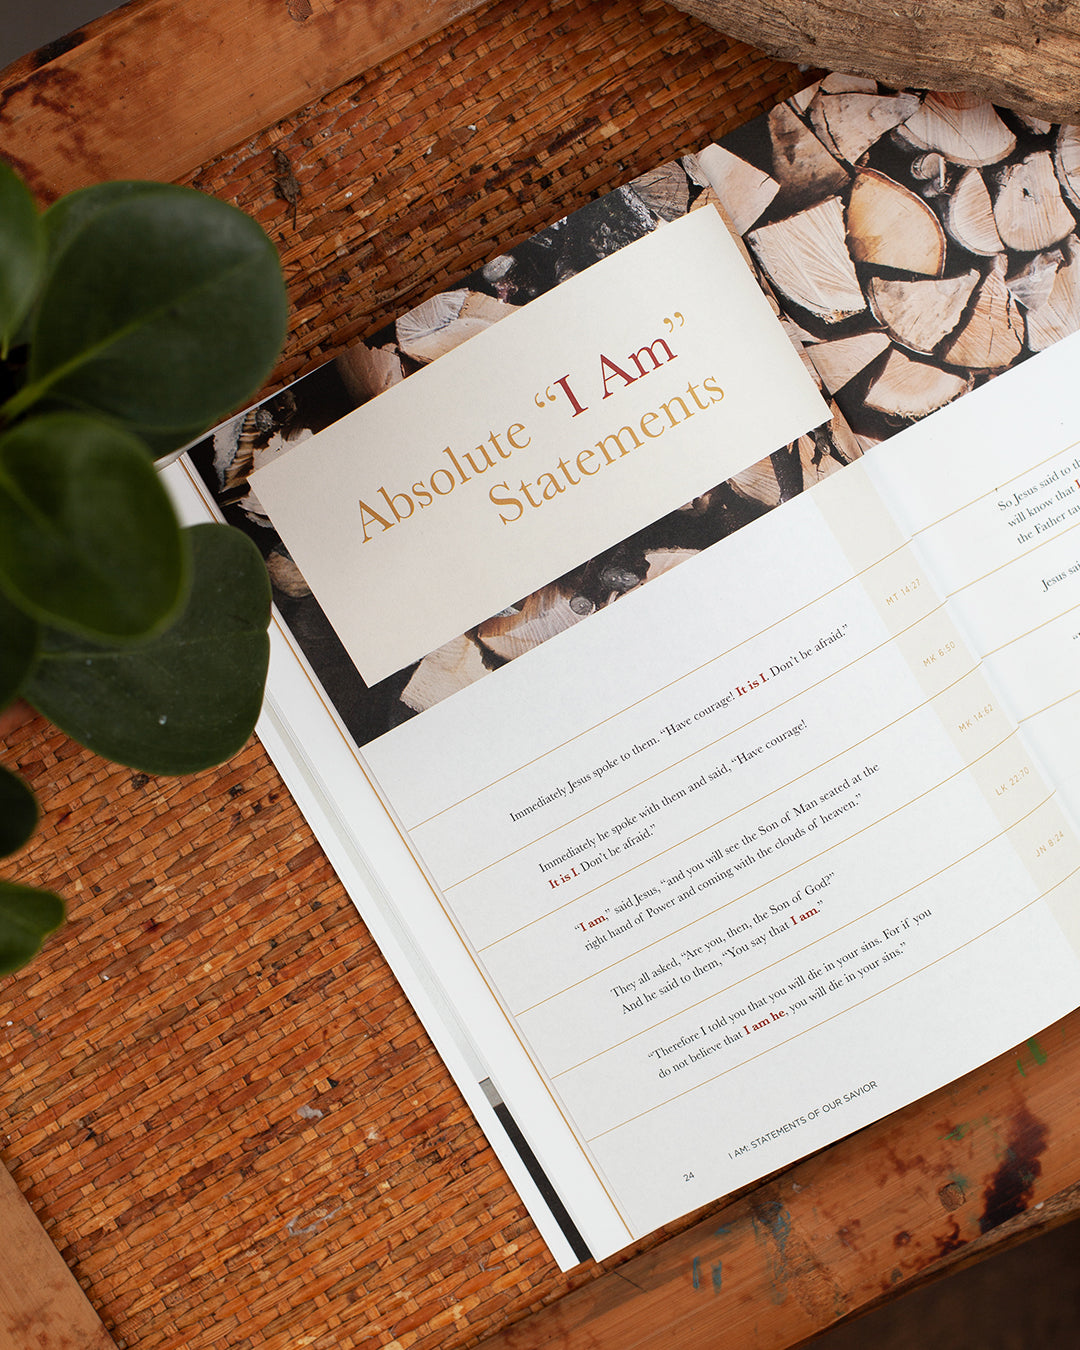 Absolute “I Am”
Statements
MT 14:27
Immediately Jesus spoke to them. “Have courage! It is I. Don’t be afraid.”
MK 6:50
Immediately he spoke with them and said, “Have courage!
It is I. Don’t be afraid.”
MK 14:62
“I am,” said Jesus, “and you will see the Son of Man seated at the
right hand of Power and coming with the clouds of heaven.”
LK 22:70
They all asked, “Are you, then, the Son of God?”
And he said to them, “You say that I am.”
JN 8:24
“Therefore I told you that you will die in your sins. For if you
do not believe that I am he, you will die in your sins.”
24
I AM: STATEMENTS OF OUR SAVIOR
So Jesus said to
will know that
the Father
Jesus